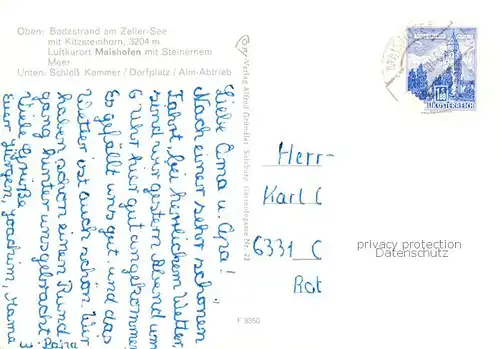 Oben: Badestrand am Zeller-See
mit Kitzsteinhorn, 3204 m
Luftkurort Maishofen mit Steinernem
Meer
Unten: Schloß Kammer / Dorfplatz / Alm-Abtrieb
Liebe Oma u. Opa!
Nach einer sehr schönen
Fahrt, bei herrlichem Wetter,
sind wir gestern Abend um
6 Uhr hier gut angekommen
Es gefällt uns gut und das
Wetter ist auch schön. Wir
haben schon einen Rund
gang hinter uns gebracht.
Viele Grüße
Euer Jürgen, Joachim, Mama
Verlag Alfred Salzburg,
REPUBLIK ÖSTERREICH
Herr
Karl
6331
Rot
privacy protection
Datenschutz
F 9350